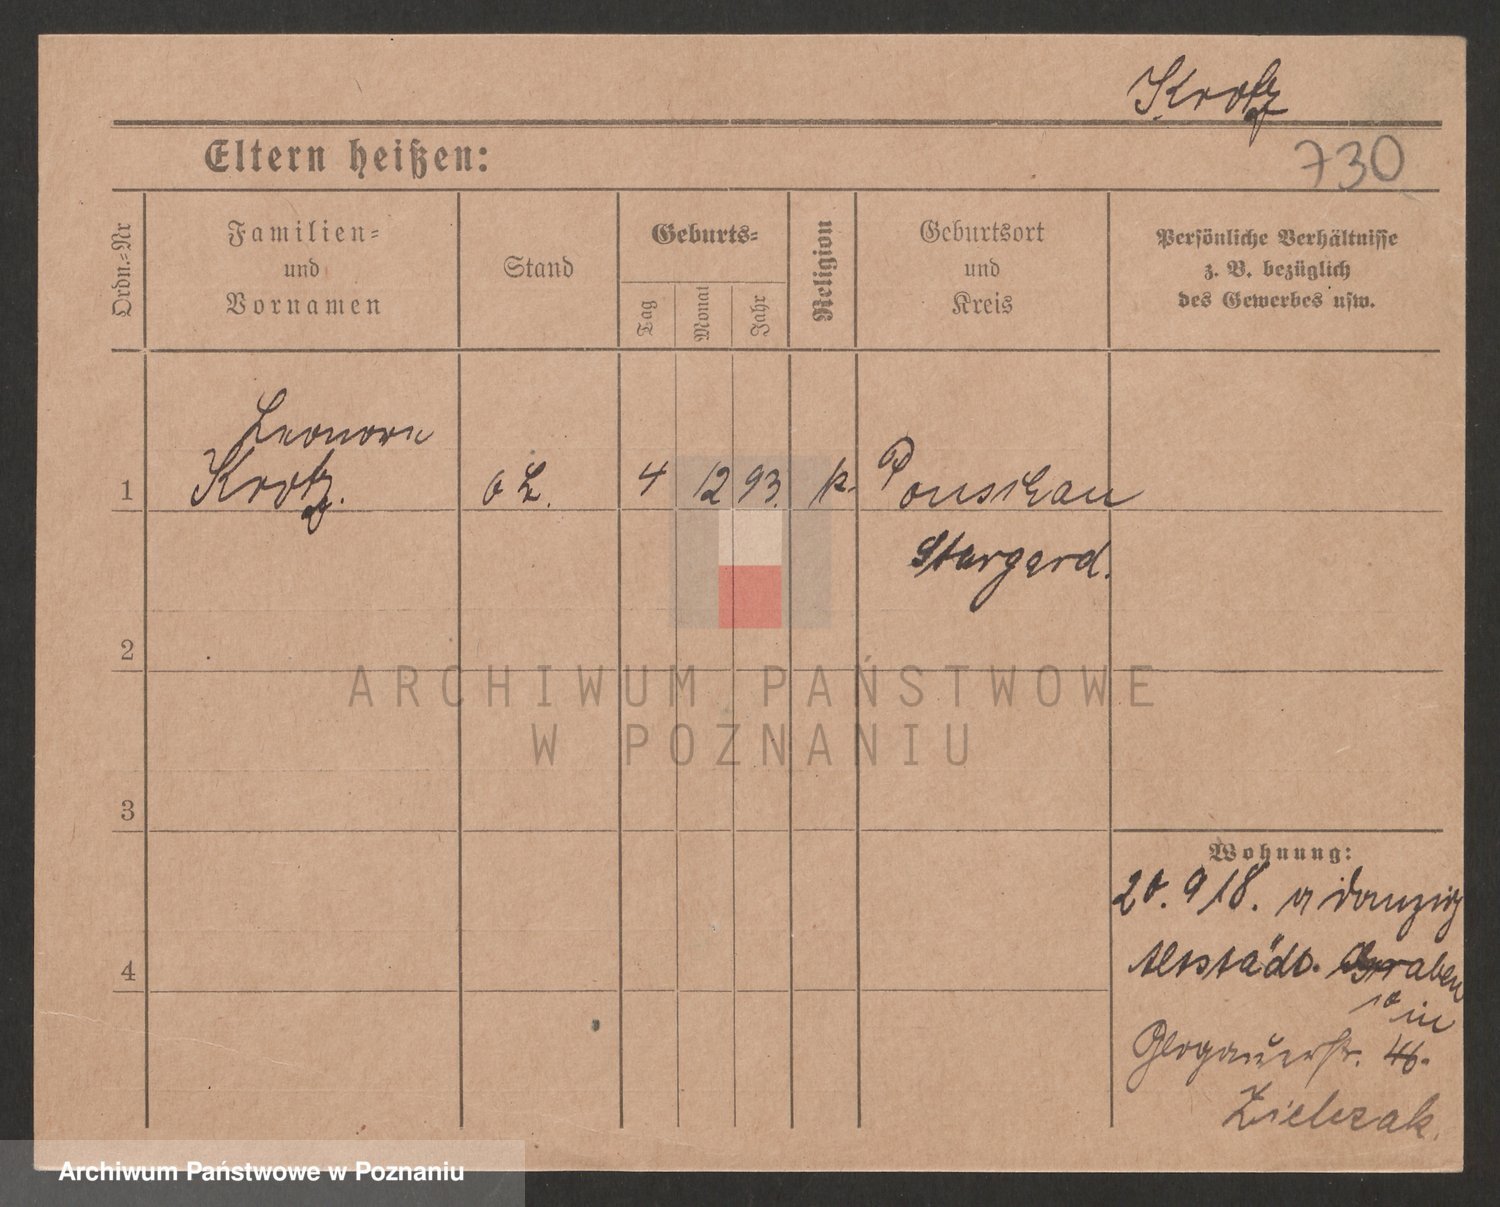 Krotz
Eltern heißen:
730
Ordn.-Nr
Familien-
und
Vornamen
Stand
Geburts-
Tag
Monat
Jahr
Religion
Geburtsort
und
Kreis
Persönliche Verhältnisse
z. B. bezüglich
des Gewerbes usw.
Leonore
1 Krotz. o L. 4 12 93. k. Ponschau
Stargard.
2
3
4
Wohnung:
20. 9 18. a Danzig
Altstädt. Graben
10 in
Glogauerstr. 46.
Zielezak.
ARCHIWUM PAŃSTWOWE
W POZNANIU
Archiwum Państwowe w Poznaniu